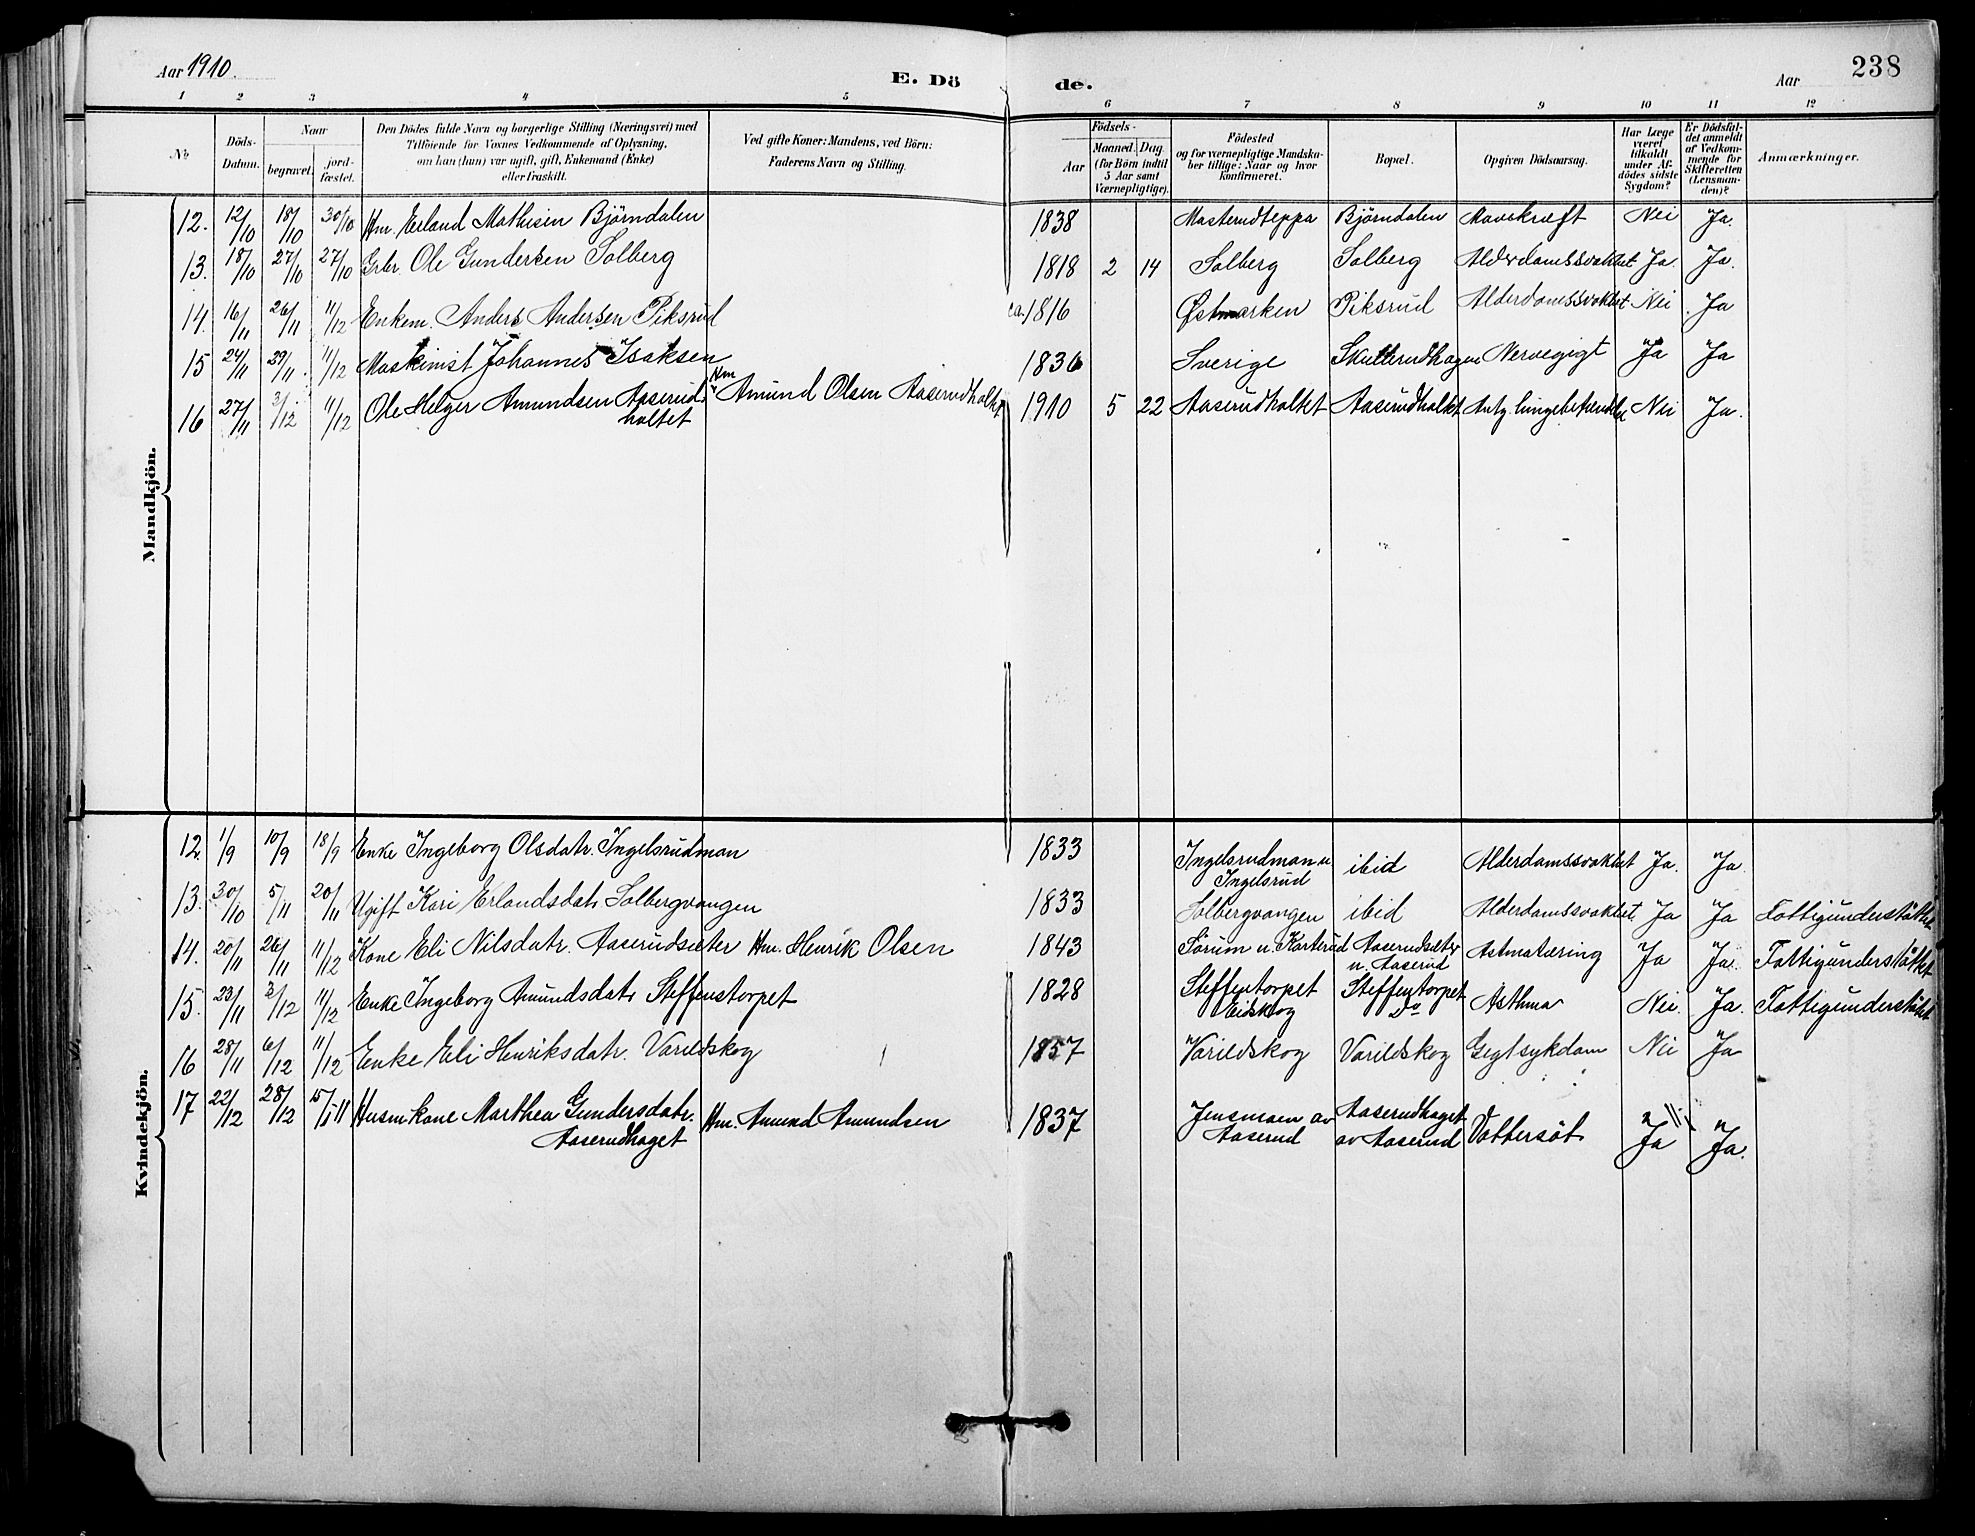 Aar 1910.
E. Dö
de.
Aar
238
1 2 3 4 5 6 7 8 9 10 11 12
No
Döds-
Datum.
Naar
begravet.
jord-
fæstet.
Den Dödes fulde Navn og borgerlige Stilling (Næringsvei) med
Tilföiende for Voxnes Vedkommende af Oplysning,
om han (hun) var ugift, gift, Enkemand (Enke)
eller fraskilt.
Ved gifte Koner: Mandens, ved Börn:
Faderens Navn og Stilling.
Födsels-
Aar
Maaned. Dag.
(for Börn indtil
5 Aar samt
Værnepligtige).
Födested
og for værnepligtige Mandska-
ber tillige: Naar og hvor
konfirmeret.
Bopæl.
Opgiven Dödsaarsag.
Har Læge
været
tilkaldt
under Af-
dödes sidste
Sygdom?
Er Dödsfal-
det anmeldt
af Vedkom-
mende for
Skifteretten
(Lensman-
den)?
Anmærkninger.
Mandkjön.
12. 12/10 18/10 30/10 Hm. Erland Mathisen Björndalen 1838 Masterudteppa Björndalen Mavekræft Nei Ja.
13. 18/10 27/10 27/10 Grbr. Ole Gundersen Solberg 1818 2 14 Solberg Solberg Alderdomssvakhet Ja. Ja.
14. 16/11 26/11 11/12 Enkem. Anders Andersen Piksrud ca. 1816 Østmarken Piksrud Alderdomssvakhet Nei Ja
15 24/11 29/11. 11/12 Maskinist Johannes Isaksen 1836 Sverige Skutterudhagen Nervegigt Ja Ja
16 27/11 3/12 11/12 Ole Helger Amundsen Aaserud- Hm Amund Olsen Aaserudholtet 1910 5 22 Aaserudholtet Aaserudholtet Antg. lungebetændelse Nei Ja.
holtet
Kvindekjön.
12. 1/9 10/9 18/9 Enke Ingeborg Olsdatr. Ingelsrudman 1833 Ingelsrudman u. ibid Alderdomssvakhet Ja. Ja.
Ingelsrud
13. 30/10 5/11 20/11 Ugift Kari Erlandsdatr Solbergvangen 1833 Solbergvangen ibid Alderdomssvakhet. Ja Ja Fattigunderstöttet
14. 20/11 26/11 11/12 Kone Eli Nilsdatr. Aaserudsæter Hm. Henrik Olsen 1843 Sörum u. Karterud Aaserudsæter Astmatæring Ja Ja. Fattigunderstöttet
u. Aaserud
15. 23/11 3/12 11/12 Enke Ingeborg Amundsdatr Steffenstorpet 1828 Steffentorpet Steffentorpet Asthma Nei. Ja. Fattigunderstöttet
Eidskog Do
16 28/11 6/12 11/12 Enke Eli Henriksdatr. Varildskog 1857 Varildskog Varildskog Gigtsykdom Nei Ja
17 22/12 28/12 15/1-11 Husmkone Marthea Gundersdatr. Hm. Amund Amundsen 1837 Jensmoen av Aaserudhaget Vattersöt Ja Ja.
Aaserudhaget Aaserud av Aaserud